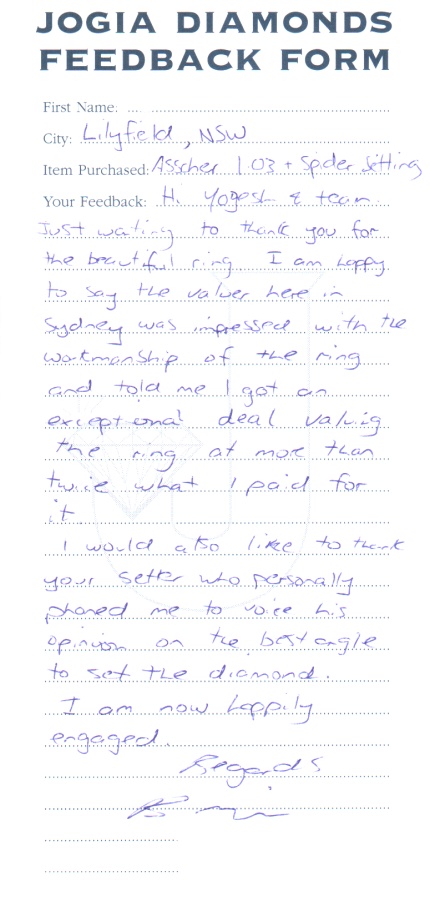 JOGIA DIAMONDS
FEEDBACK FORM
First Name:
City: Lilyfield, NSW
Item Purchased: Asscher 1.03 + Spider Setting
Your Feedback: Hi Yogesh & team
Just wating to thank you for
the beautiful ring. I am happy
to say the valuer here in
Sydney was impressed with the
workmanship of the ring
and told me I got an
exceptional deal valuing
the ring at more than
twice what I paid for
it
I would also like to thank
your setter who personally
phoned me to voice his
opinion on the best angle
to set the diamond.
I am now happily
engaged.
Regards